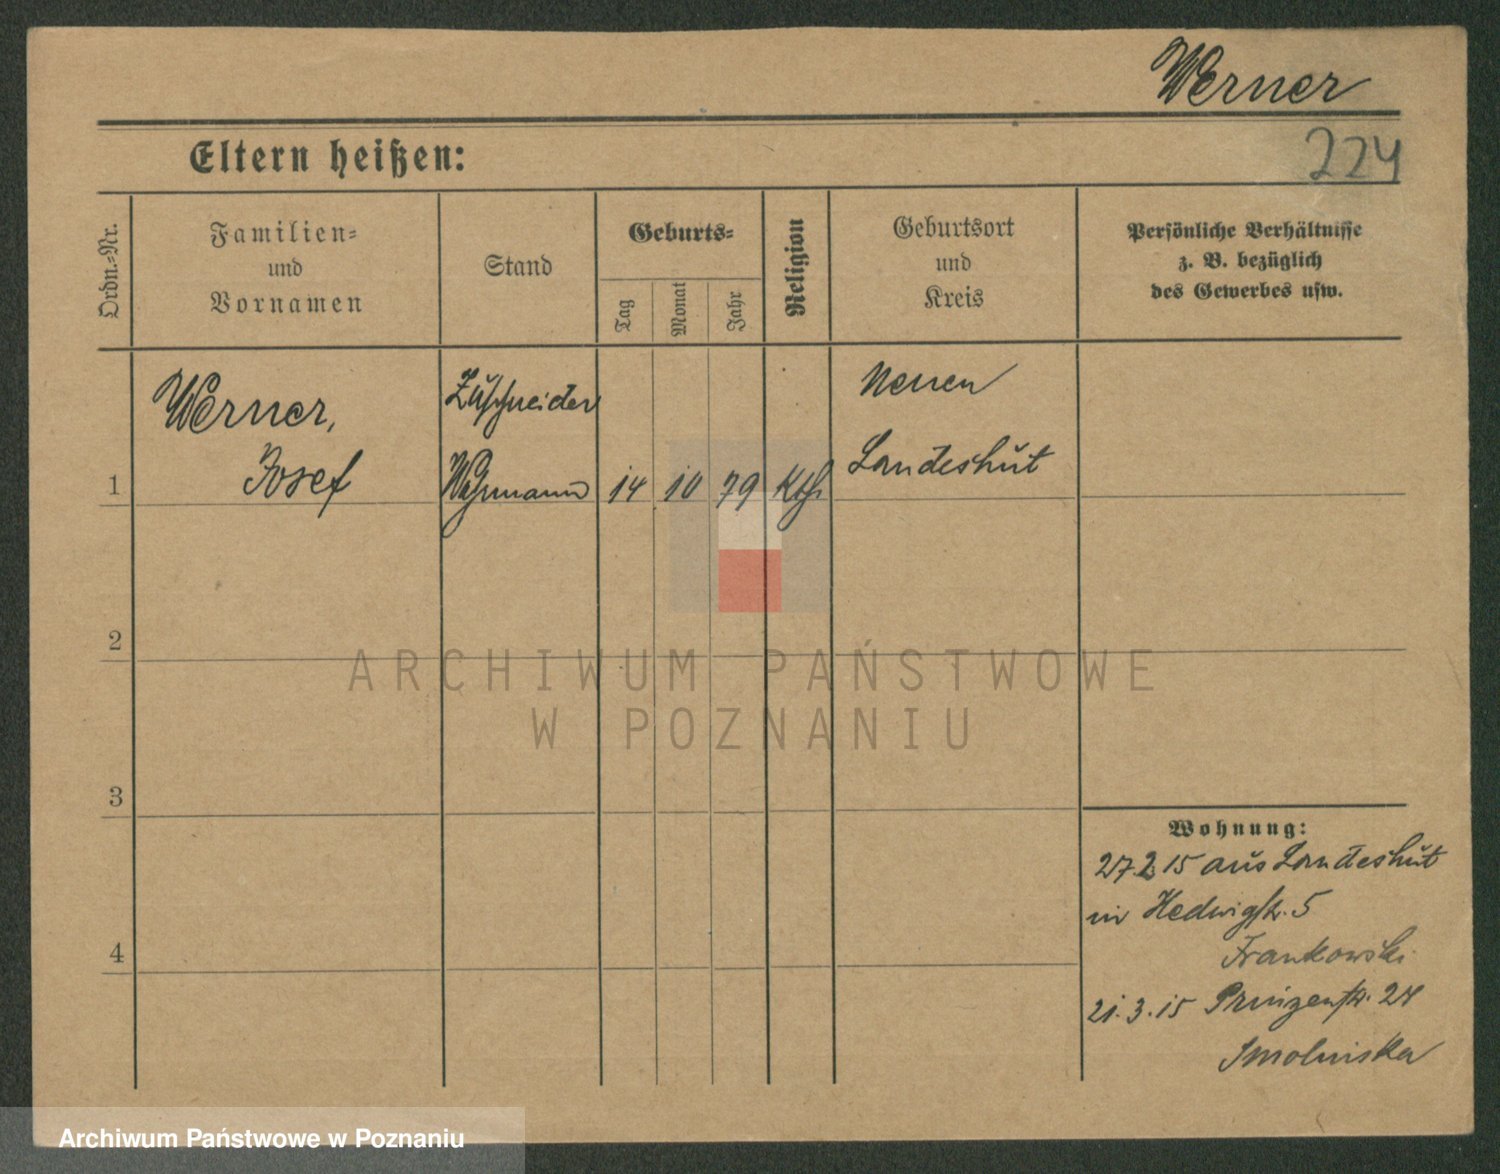 Werner
224
Eltern heißen:
Ordn.-Nr.
Familien-
und
Vornamen
Stand
Geburts-
Tag
Monat
Jahr
Religion
Geburtsort
und
Kreis
Persönliche Verhältnisse
z. B. bezüglich
des Gewerbes usw.
1
Werner,
Josef
Zuschneider
Wehrmann
14
10
79
Kth.
Neuen
Landeshut
2
3
4
Wohnung:
27.2.15 aus Landeshut
in Hedwigstr. 5
Frankowski.
21.3.15 Prinzenstr. 24
Smolniska
ARCHIWUM PAŃSTWOWE
W POZNANIU
Archiwum Państwowe w Poznaniu